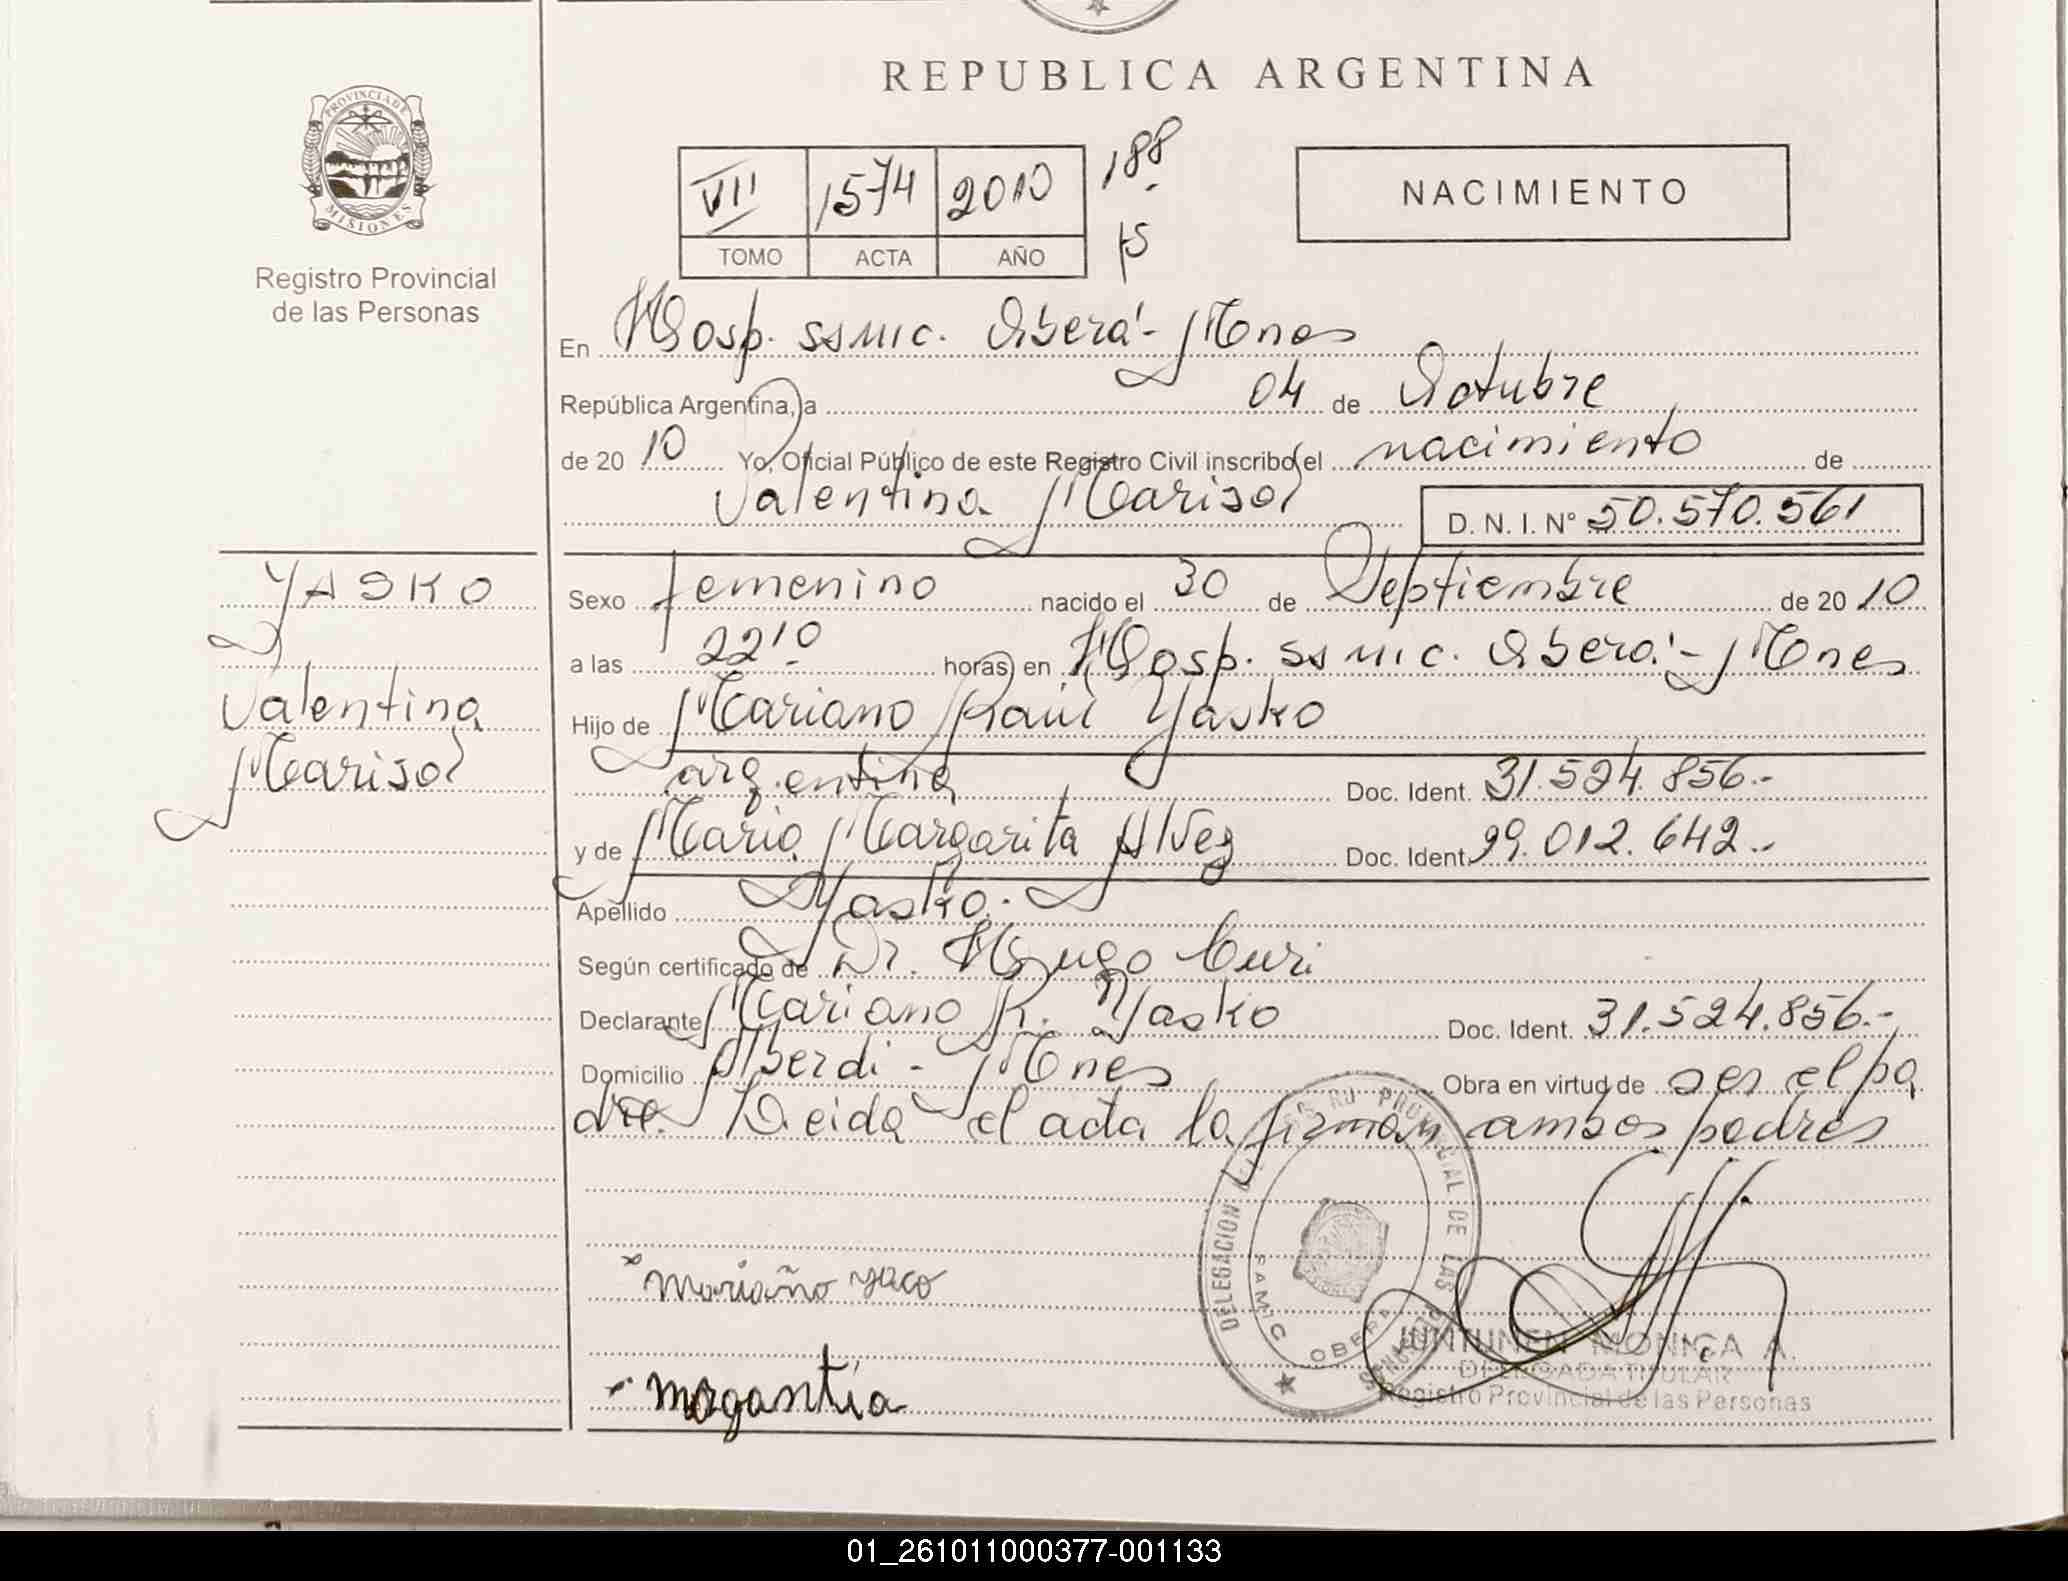 REPUBLICA ARGENTINA
PROVINCIA DE
MISIONES
Registro Provincial
de las Personas
VII 1574 2010 188
TOMO ACTA AÑO 15
NACIMIENTO
En Hosp. SSMIC. Oberá - Mnes
República Argentina, a 04 de Octubre
de 20 10 Yo, Oficial Público de este Registro Civil inscribo el nacimiento de
Valentina Marisol D. N. I. Nº 50.570.561
YASKO
Valentina
Marisol
Sexo femenino nacido el 30 de Septiembre de 20 10
a las 2210 horas en Hosp. SSMIC. Oberá - Mnes
Hijo de Mariano Raúl Yasko
argentina Doc. Ident. 31.524.856.-
y de María Margarita Alvez Doc. Ident. 99.012.642.-
Apellido Yasko.-
Según certificado de Dr. Hugo Curi
Declarante Mariano R. Yasko Doc. Ident. 31.524.856.-
Domicilio Alberdi - Mnes Obra en virtud de ser el pa
dre. Leida el acta la firman ambos padres
DELEGACION REGISTRO PROVINCIAL DE LAS PERSONAS
SAMIC OBERA
Mariaño yaco
JUNTUNEN MONICA A.
DELEGADA TITULAR
Registro Provincial de las Personas
01_261011000377-001133